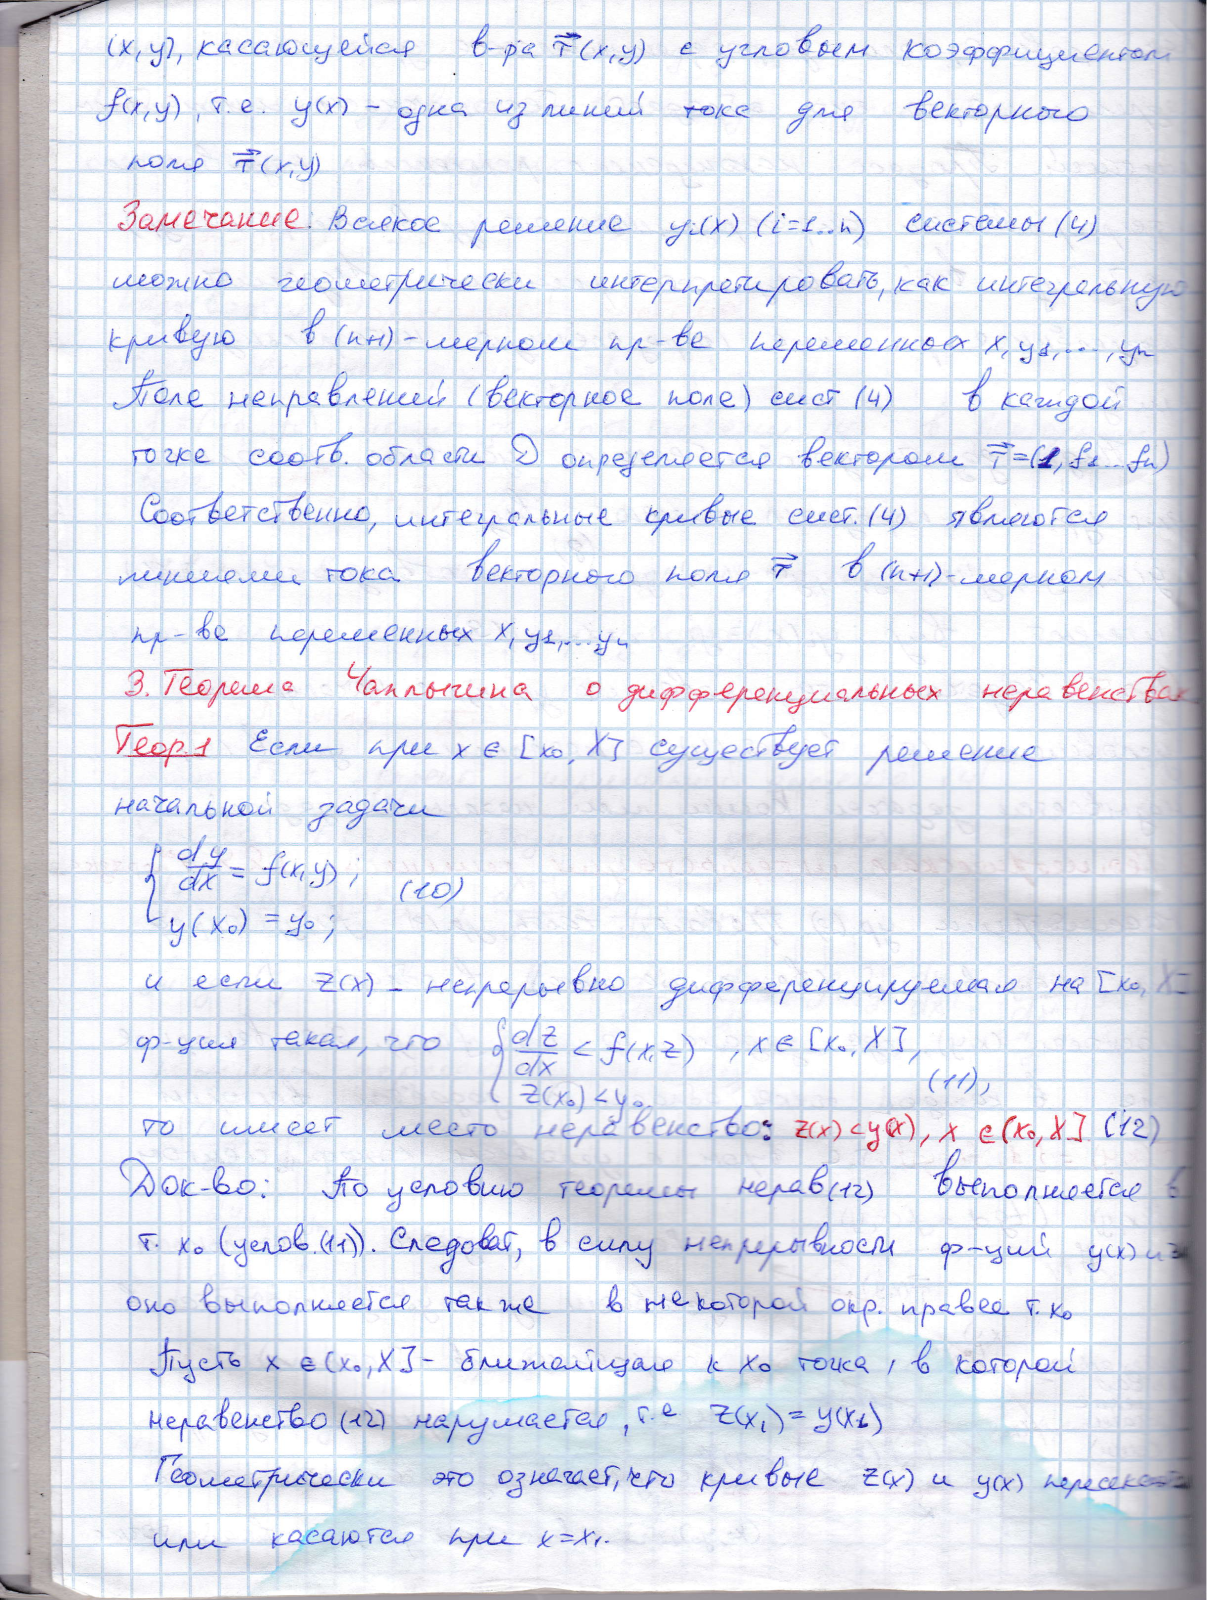 (x,y), касающейся в-ра T⃗(x,y) с угловым коэффициентом
f(x,y), т.е. y(x) – одна из линий тока для векторного
поля T⃗(x,y)
Замечание. Всякое решение yᵢ(x) (i=1..n) системы (4)
можно геометрически интерпретировать, как интегральную
кривую в (n+1)-мерном пр-ве переменных x, y₁, ..., yₙ
Поле направлений (векторное поле) сист (4) в каждой
точке соотв. области D определяется вектором T⃗=(1, f₁...fₙ)
Соответственно, интегральные кривые сист. (4) являются
линиями тока векторного поля T⃗ в (n+1)-мерном
пр-ве переменных x, y₁, ... yₙ
3. Теорема Чаплыгина о дифференциальных неравенствах
Теор.1 Если при x ∈ [x₀, X] существует решение
начальной задачи
{ dy/dx = f(x,y); (10)
y(x₀) = y₀;
и если z(x) – непрерывно дифференцируемая на [x₀, X]
ф-ция такая, что { dz/dx < f(x,z) , x ∈ [x₀, X],
z(x₀) < y₀ (11),
то имеет место неравенство: z(x) < y(x), x ∈ (x₀, X] (12)
Док-во: По условию теоремы нерав (12) выполняется в
т. x₀ (услов. (11)). Следоват, в силу непрерывности ф-ций y(x) и
оно выполняется также в некоторой окр. правее т. x₀
Пусть x ∈ (x₀, X] – ближайшая к x₀ точка, в которой
неравенство (12) нарушается, т.е z(x₁) = y(x₁)
Геометрически это означает, что кривые z(x) и y(x) пересекаются
или касаются при x=x₁.